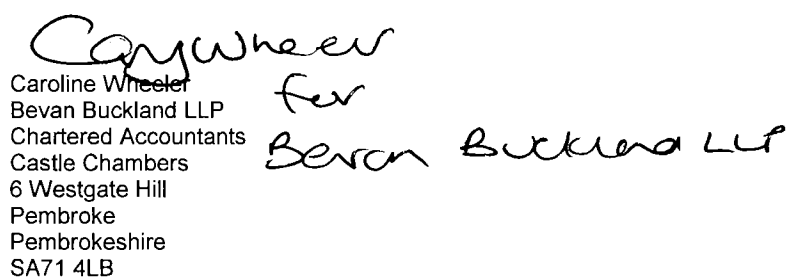 Caroline Wheeler
for
Bevan Buckland LLP
Bevan Buckland LLP
Chartered Accountants
Castle Chambers
6 Westgate Hill
Pembroke
Pembrokeshire
SA71 4LB